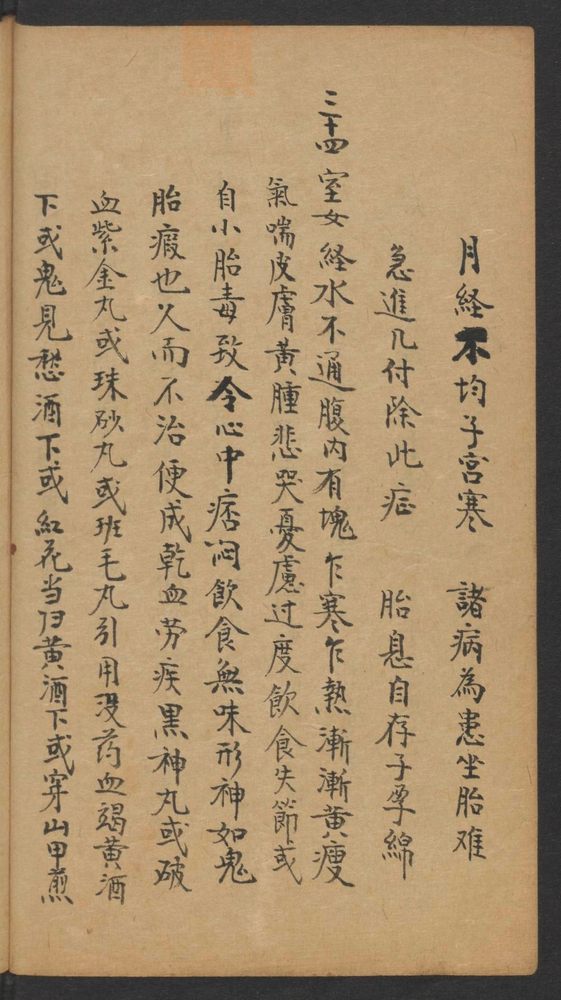 月経不均子宮寒　諸病為患坐胎难
急進几付除此症　胎息自存子孕綿
三十四室女経水不通腹内有塊乍寒乍熱漸漸黄瘦
氣喘皮膚黃腫悲哭憂慮过度飲食失節或
自小胎毒致令心中痞悶飲食無味形神如鬼
胎瘕也久而不治便成乾血劳疾黑神丸或破
血紫金丸或珠砂丸或班毛丸引用没药血竭黄酒
下或鬼見愁酒下或紅花当归黄酒下或穿山甲煎